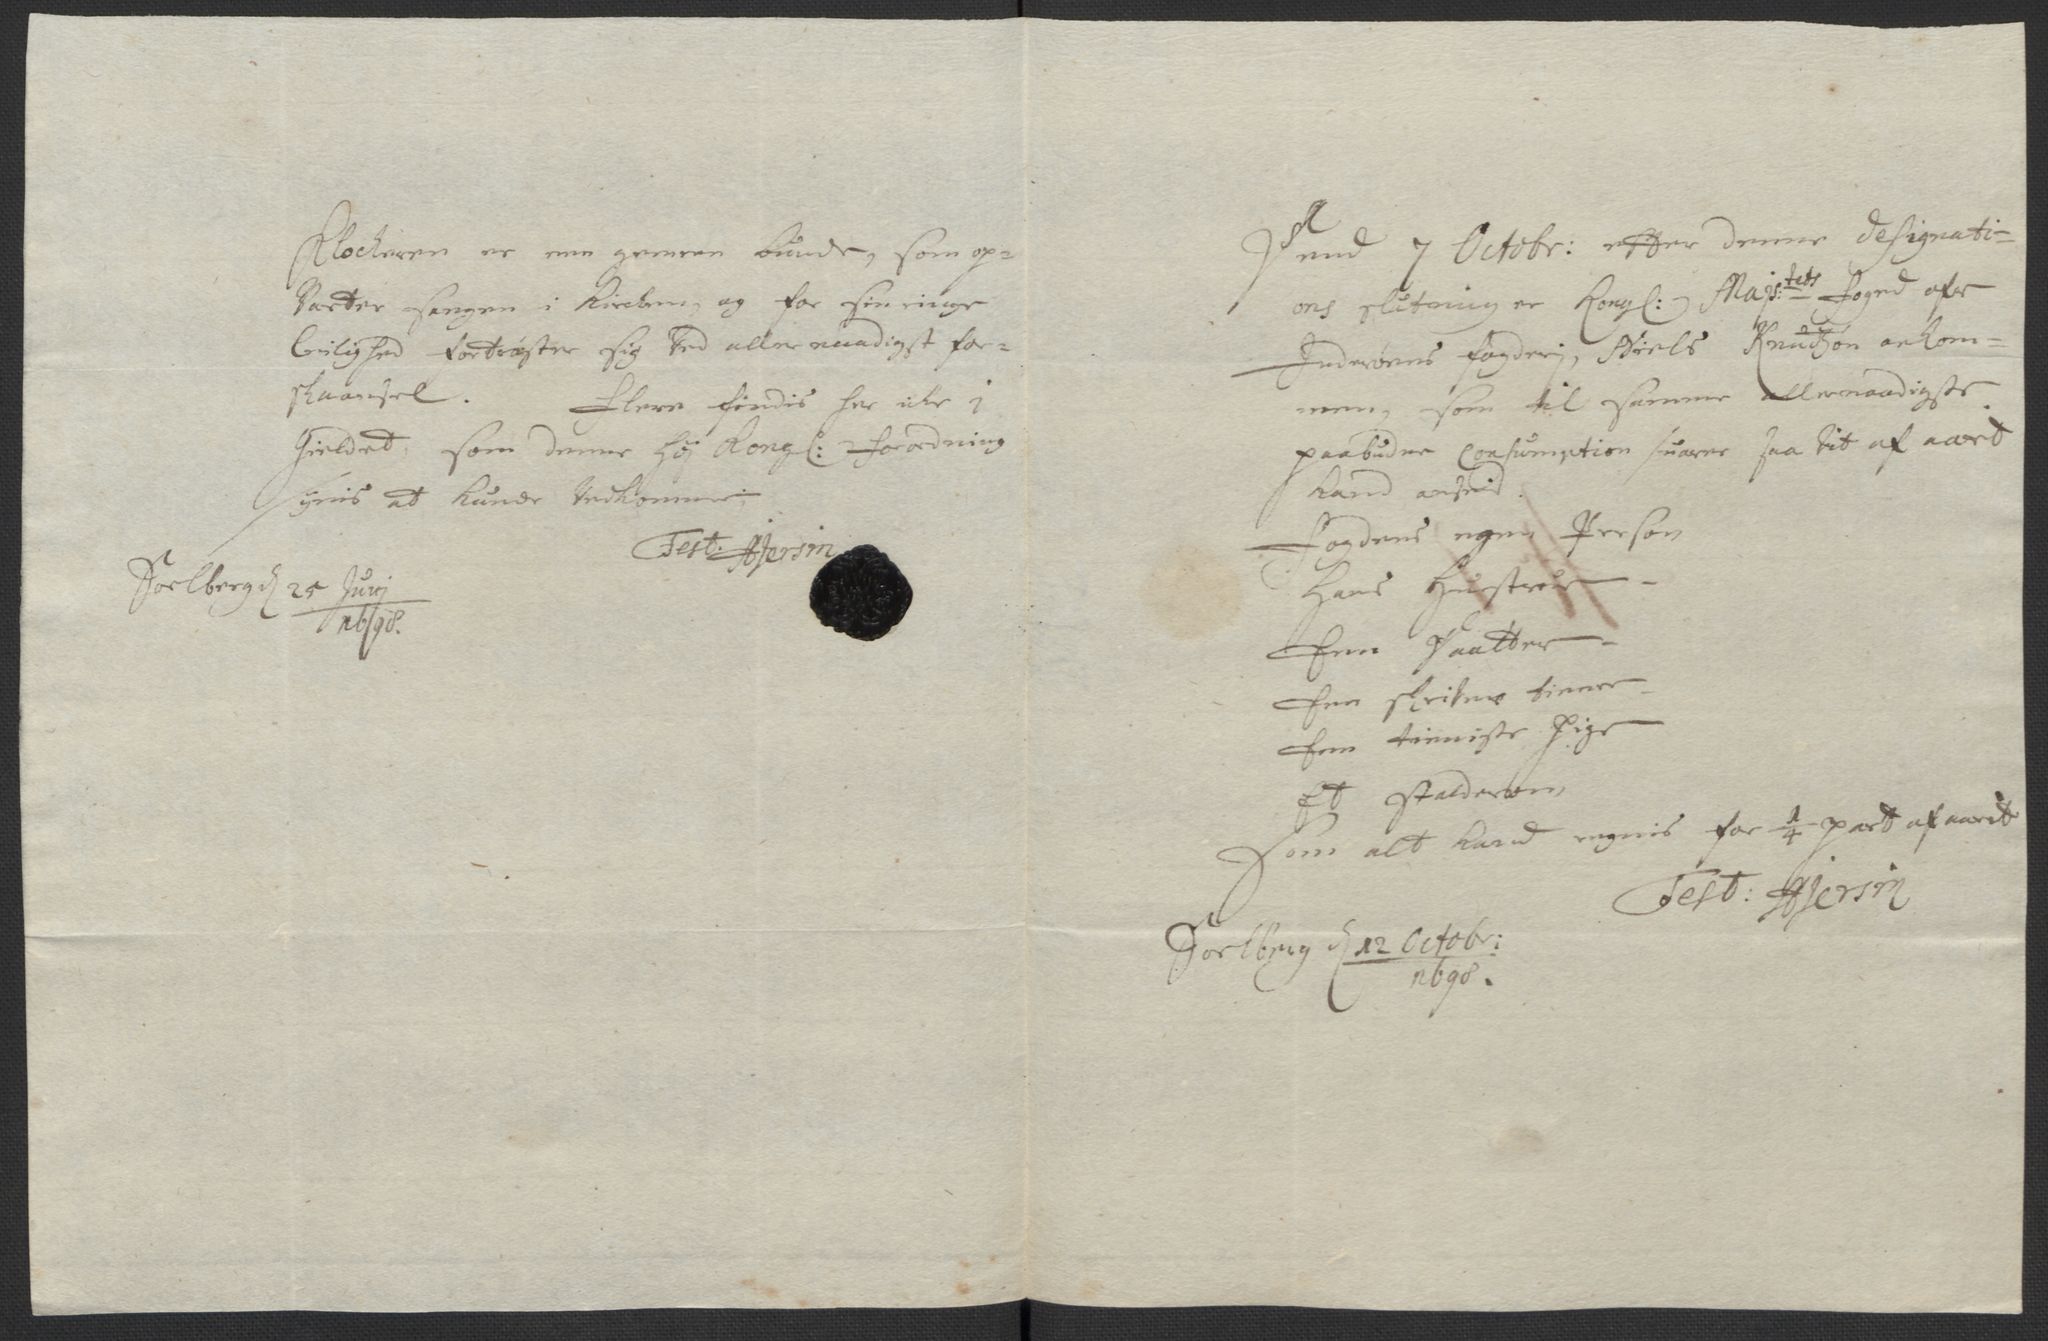 Klockeren er een gemeen bunde, som op-
varter sangen i Kircken, og for sin ringe
leilighed fortrøster sig ved allernaadigst for-
skaansel. Flere findis her icke i
Gieldet som denne høj Kongl: forordning
siunis at kunde vedkomme.
Test. AJersin
Soelberg d 25 Junj
1698.
7 Octobr: effter denne designati-
ons slutning er Kongl: Majs:tets foged ofr
Inderøens fogderj, Niels Knudtzøn ankom-
men, som til samme allernaadigste
paabudne Consumption suarer saa vit af aaret
kand ansees.
Fogdens egen Person
Hans Hustrue
Een Daatter
Een skriver tienere
Een tieniste Pige
Et
Som alt kand regnis for 1/4 part af aaret
Test: AJersin
Soelberg d 12 Octobr:
1698.